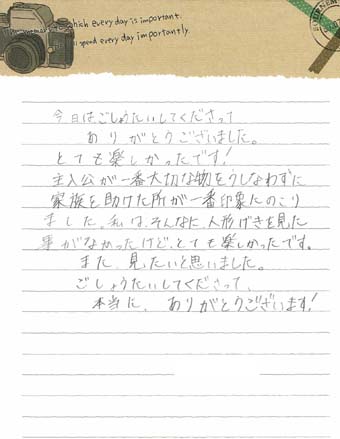 which every day is important.
spend every day importantly.
今日はごしょうたいしてくださって
ありがとうございました。
とても楽しかったです!
主人公が一番大切な物をうしなわずに
家族を助けた所が一番印象にのこり
ました。私は、そんなに、人形げきを見た
事がなかったけど、とても楽しかったです。
また、見たいと思いました。
ごしょうたいしてくださって、
本当に、ありがとうございます!